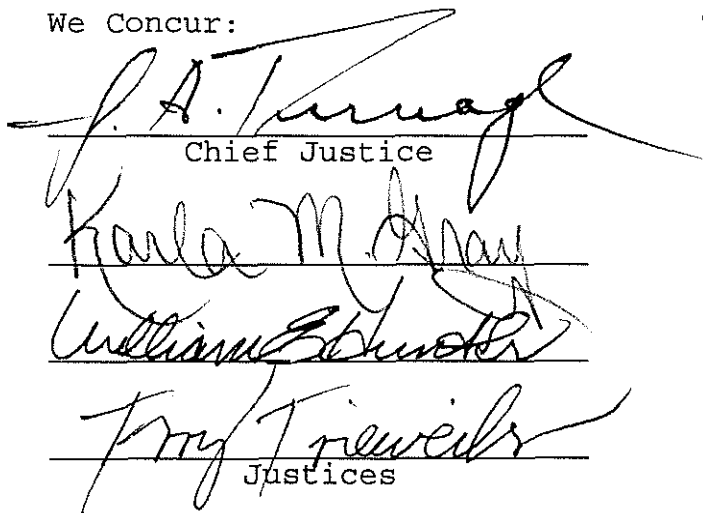 We Concur:
J. A. Turnage
Chief Justice
Karla M. Gray
William E. Hunter
Terry Trieweiler
Justices